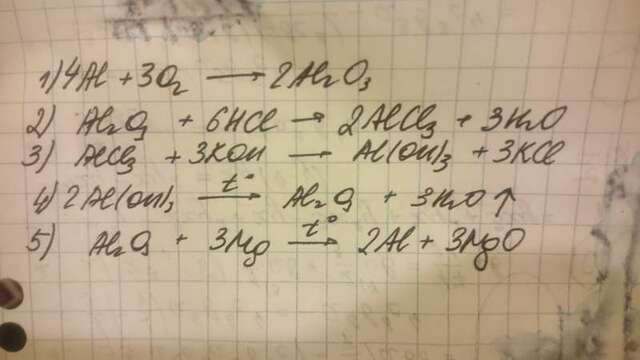 1) 4Al + 3O₂ → 2Al₂O₃
2) Al₂O₃ + 6HCl → 2AlCl₃ + 3H₂O
3) AlCl₃ + 3KOH → Al(OH)₃ + 3KCl
4) 2Al(OH)₃ t° → Al₂O₃ + 3H₂O ↑
5) Al₂O₃ + 3Mg t° → 2Al + 3MgO